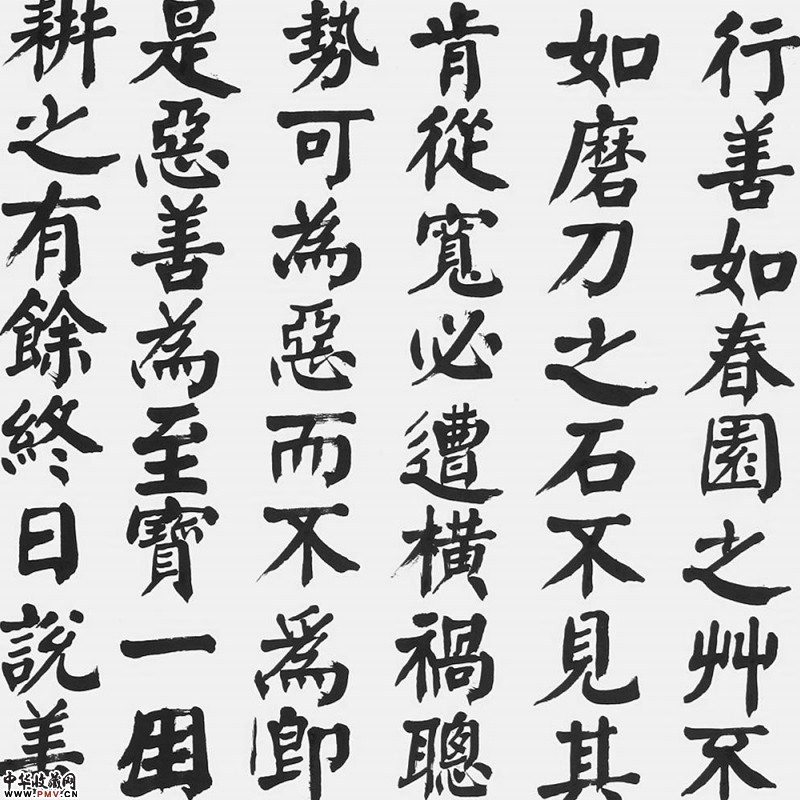 行善如春園之艸不
如磨刀之石不見其
肯從寬必遭橫禍聰
勢可為惡而不爲即
是惡善為至寶一
耕之有餘終日說善
中华收藏网
www.PMV.CN